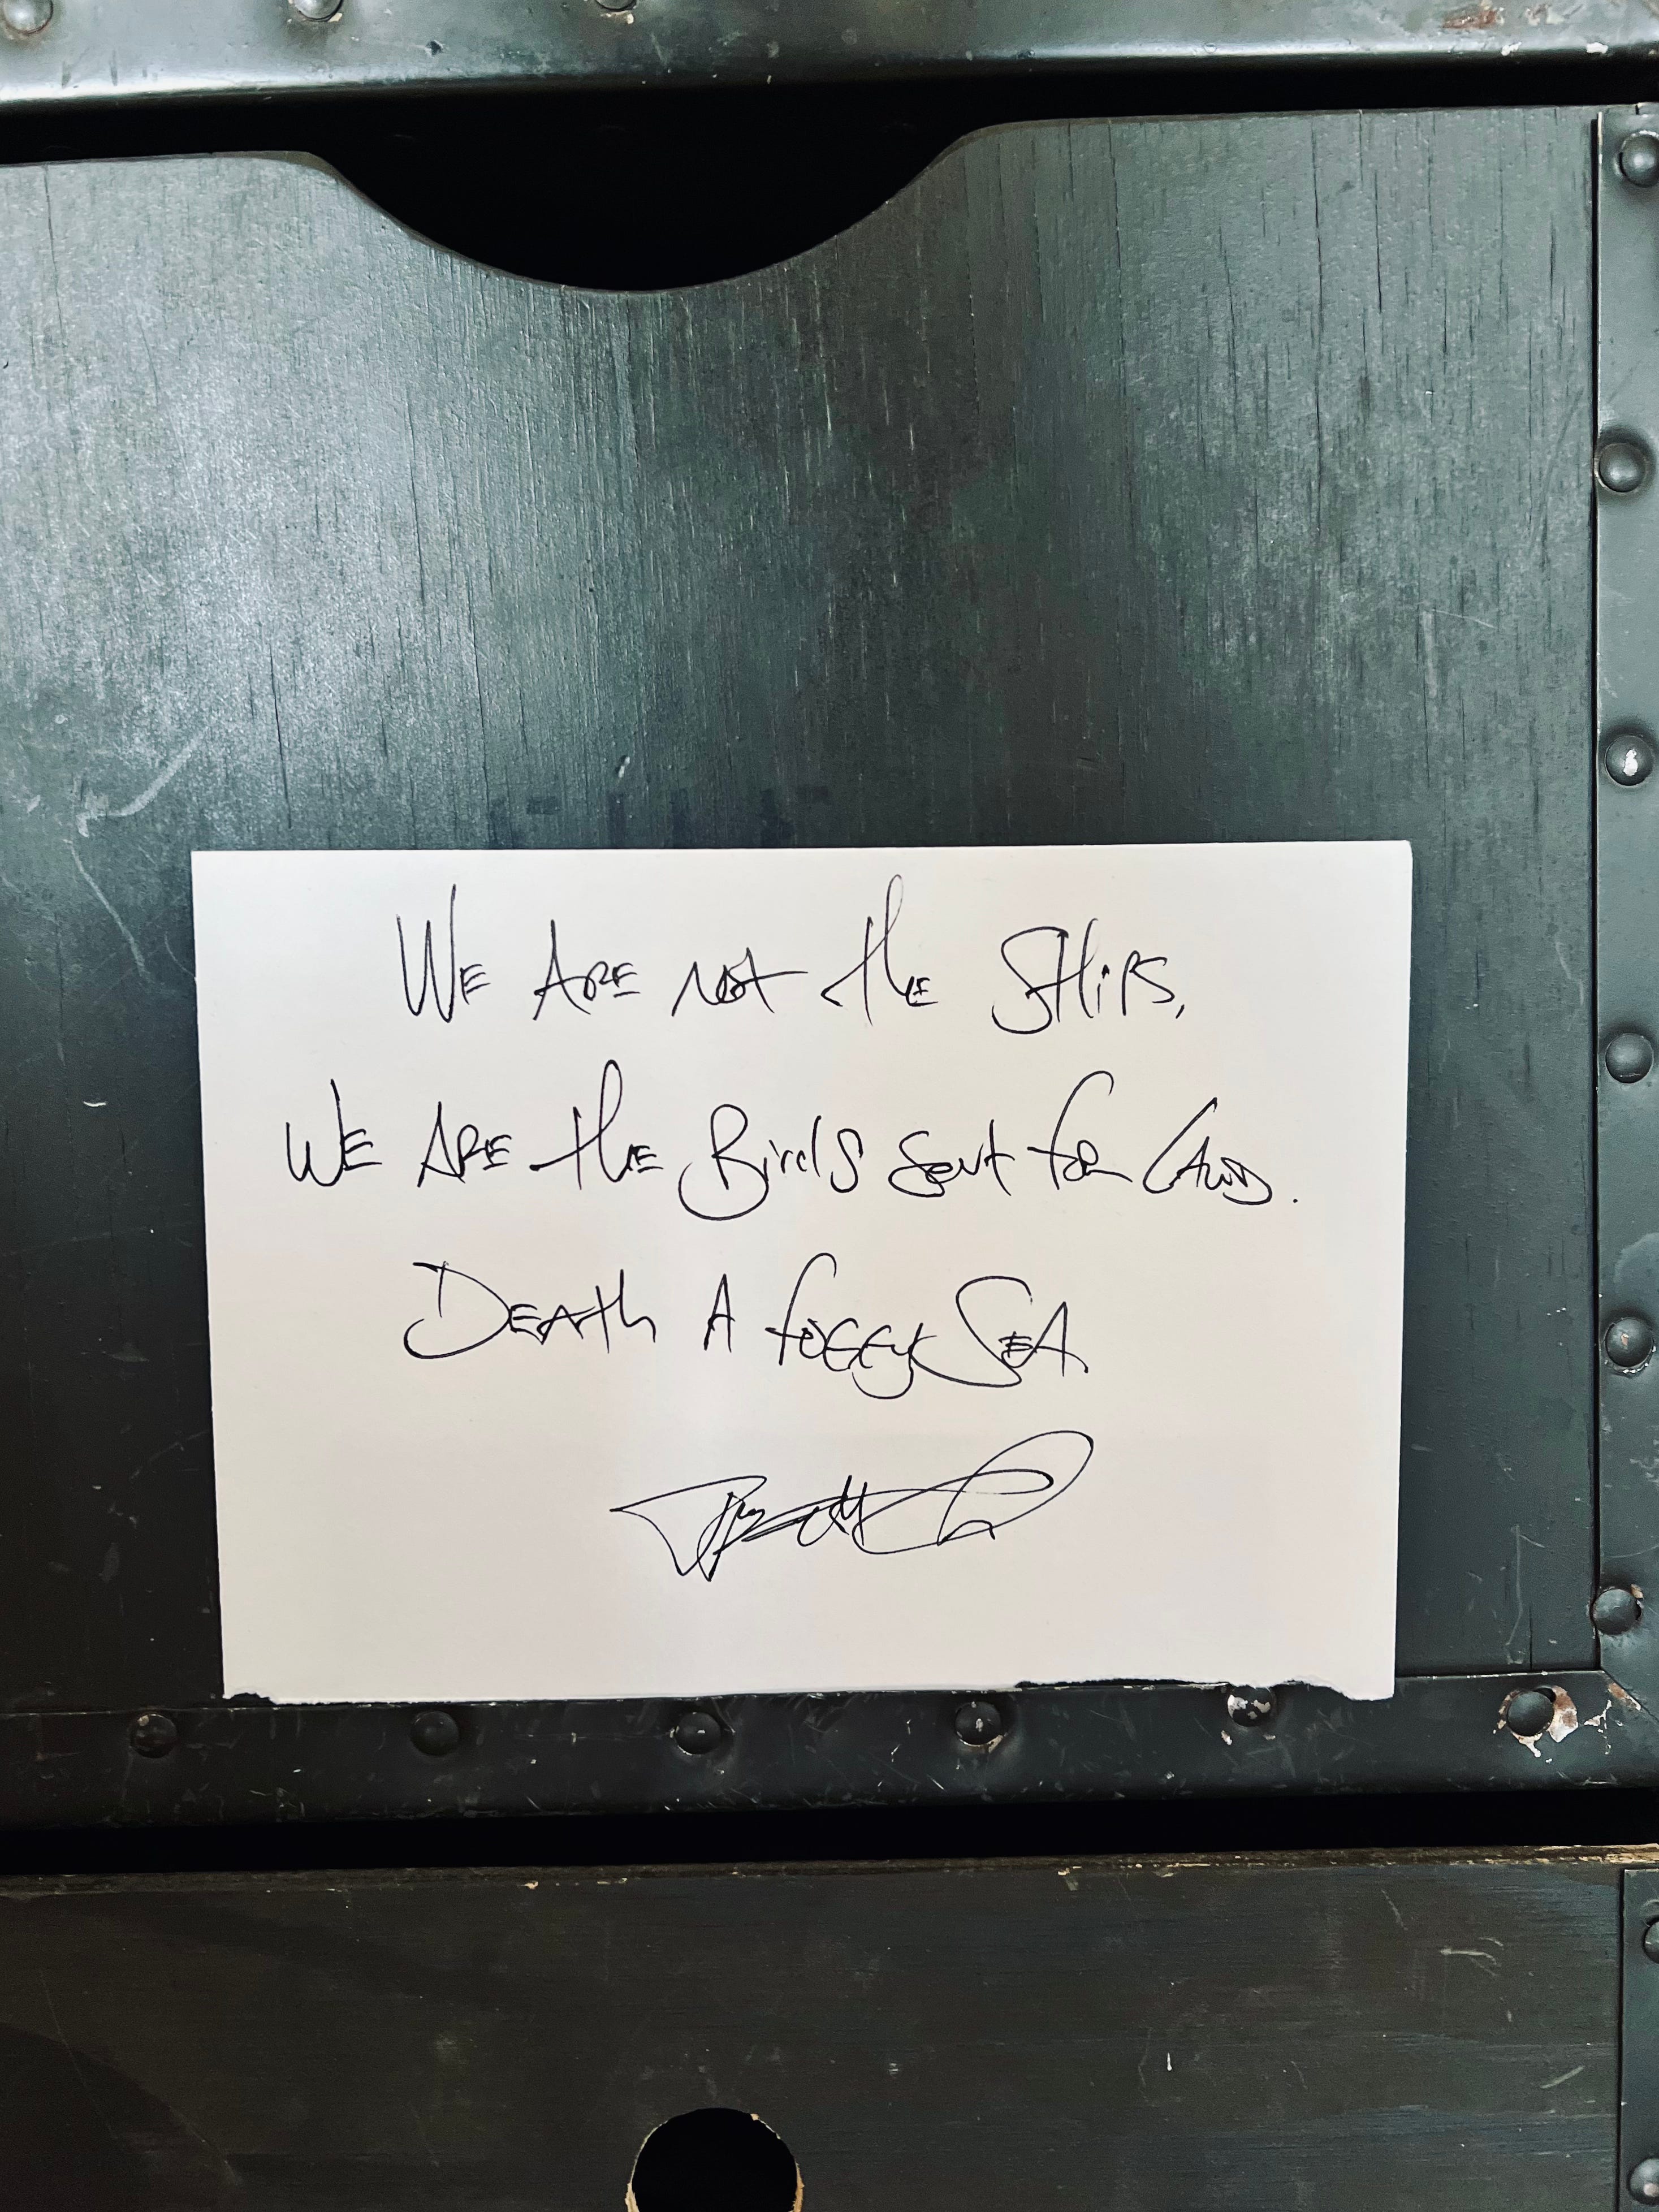 We Are not the Ships,
We Are the Birds sent for Land.
Death A foggy Sea.